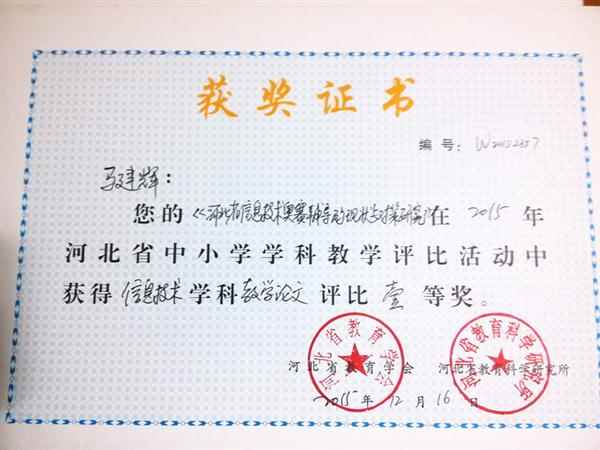 获奖证书
编号：W20152357
马建辉：
您的《河北省信息技术奥赛辅导的现状与对策研究》在 2015 年
河北省中小学学科教学评比活动中
获得 信息技术 学科 教学论文 评比 壹 等奖。
河北省教育学会
河北省教育科学研究所
河北省教育学会 河北省教育科学研究所
2015 年 12 月 16 日